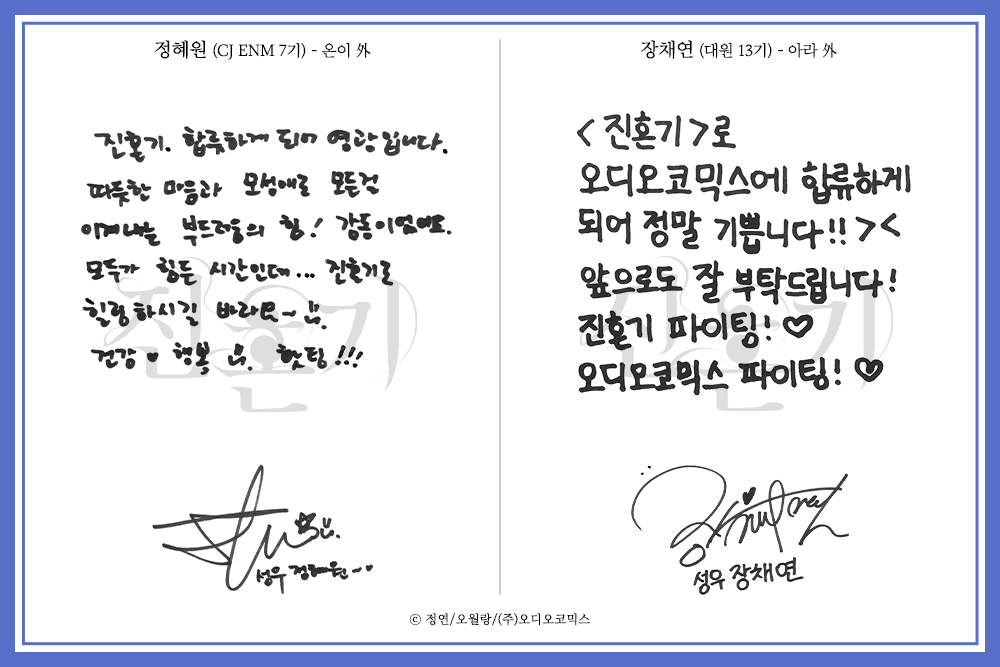 정혜원 (CJ ENM 7기) - 온이 外
진혼기. 합류하게 되어 영광입니다.
따듯한 마음과 모성애로 모든걸
이겨내는 부드러움의 힘! 감동이었어요.
모두가 힘든 시간인데... 진혼기로
힐링하시길 바라요~
건강 행복 핫팅!!!
성우 정혜원~
장채연 (대원 13기) - 아라 外
<진혼기>로
오디오코믹스에 합류하게
되어 정말 기쁩니다!! ><
앞으로도 잘 부탁드립니다!
진혼기 파이팅! ♡
오디오코믹스 파이팅! ♡
성우 장채연
진혼기
진혼기
© 정연/오월랑/(주)오디오코믹스